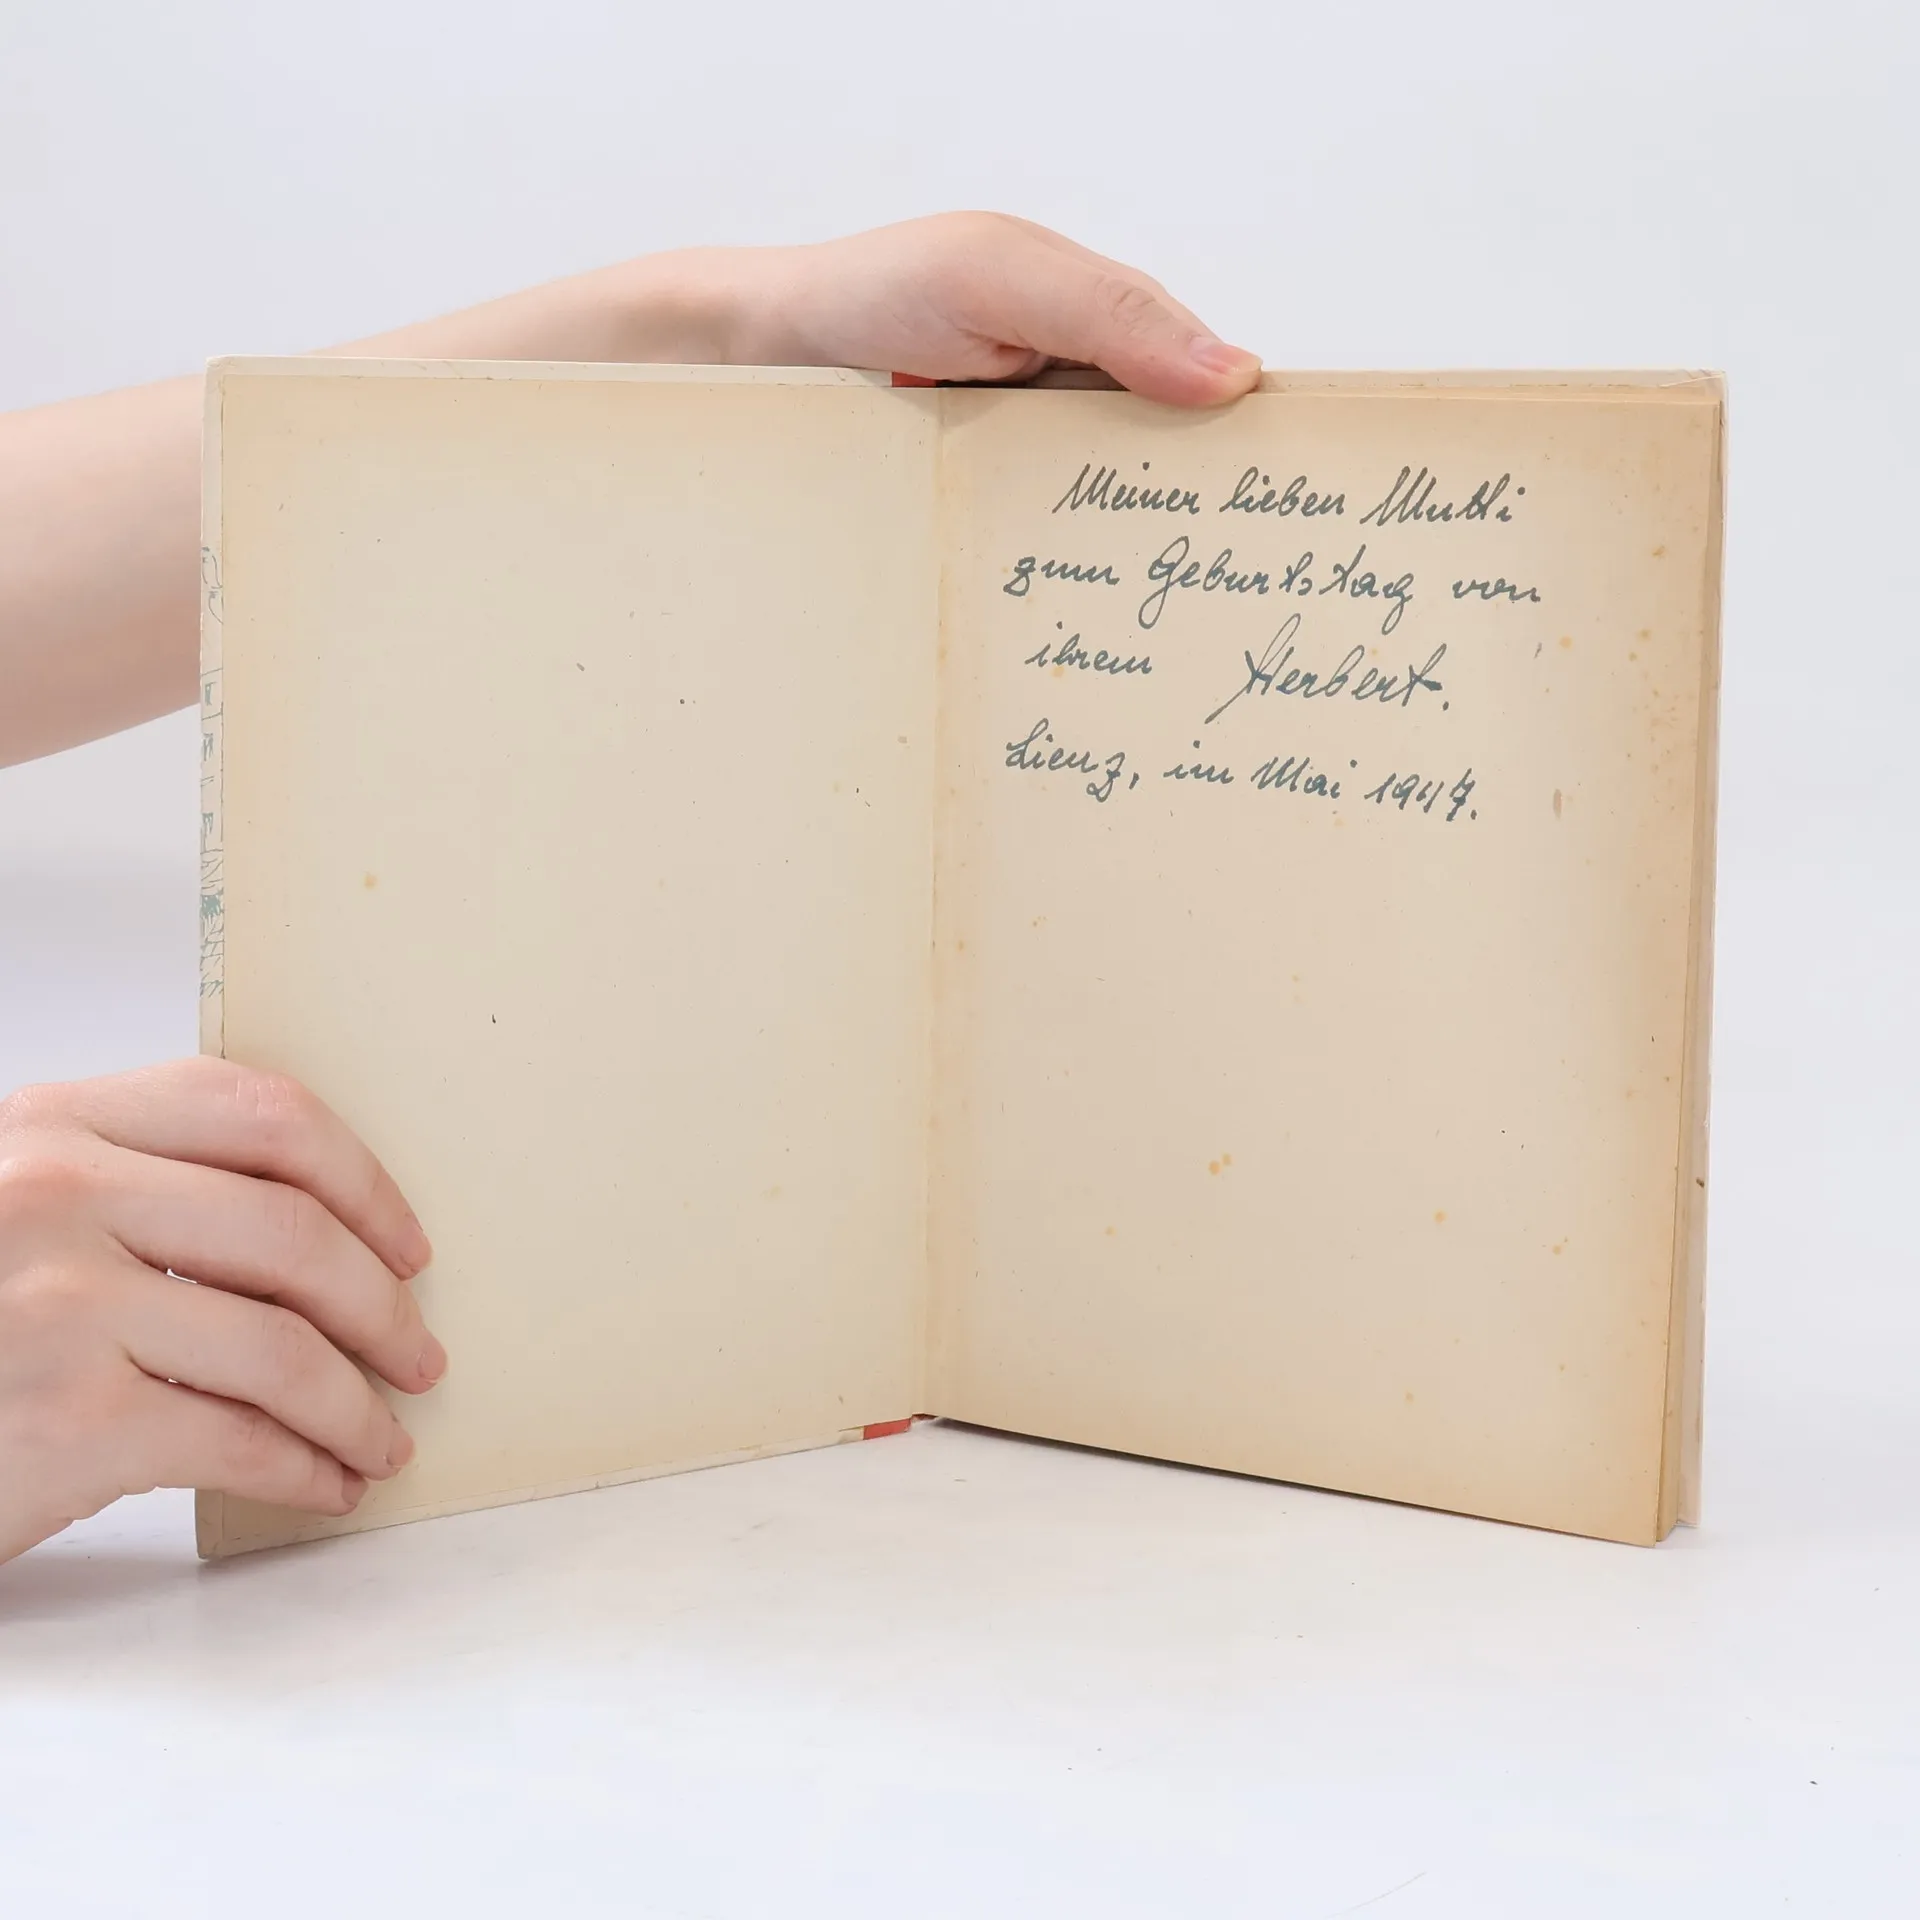 Meiner lieben Mutti
zum Geburtstag von
ihrem Herbert.
Lienz, im Mai 1947.